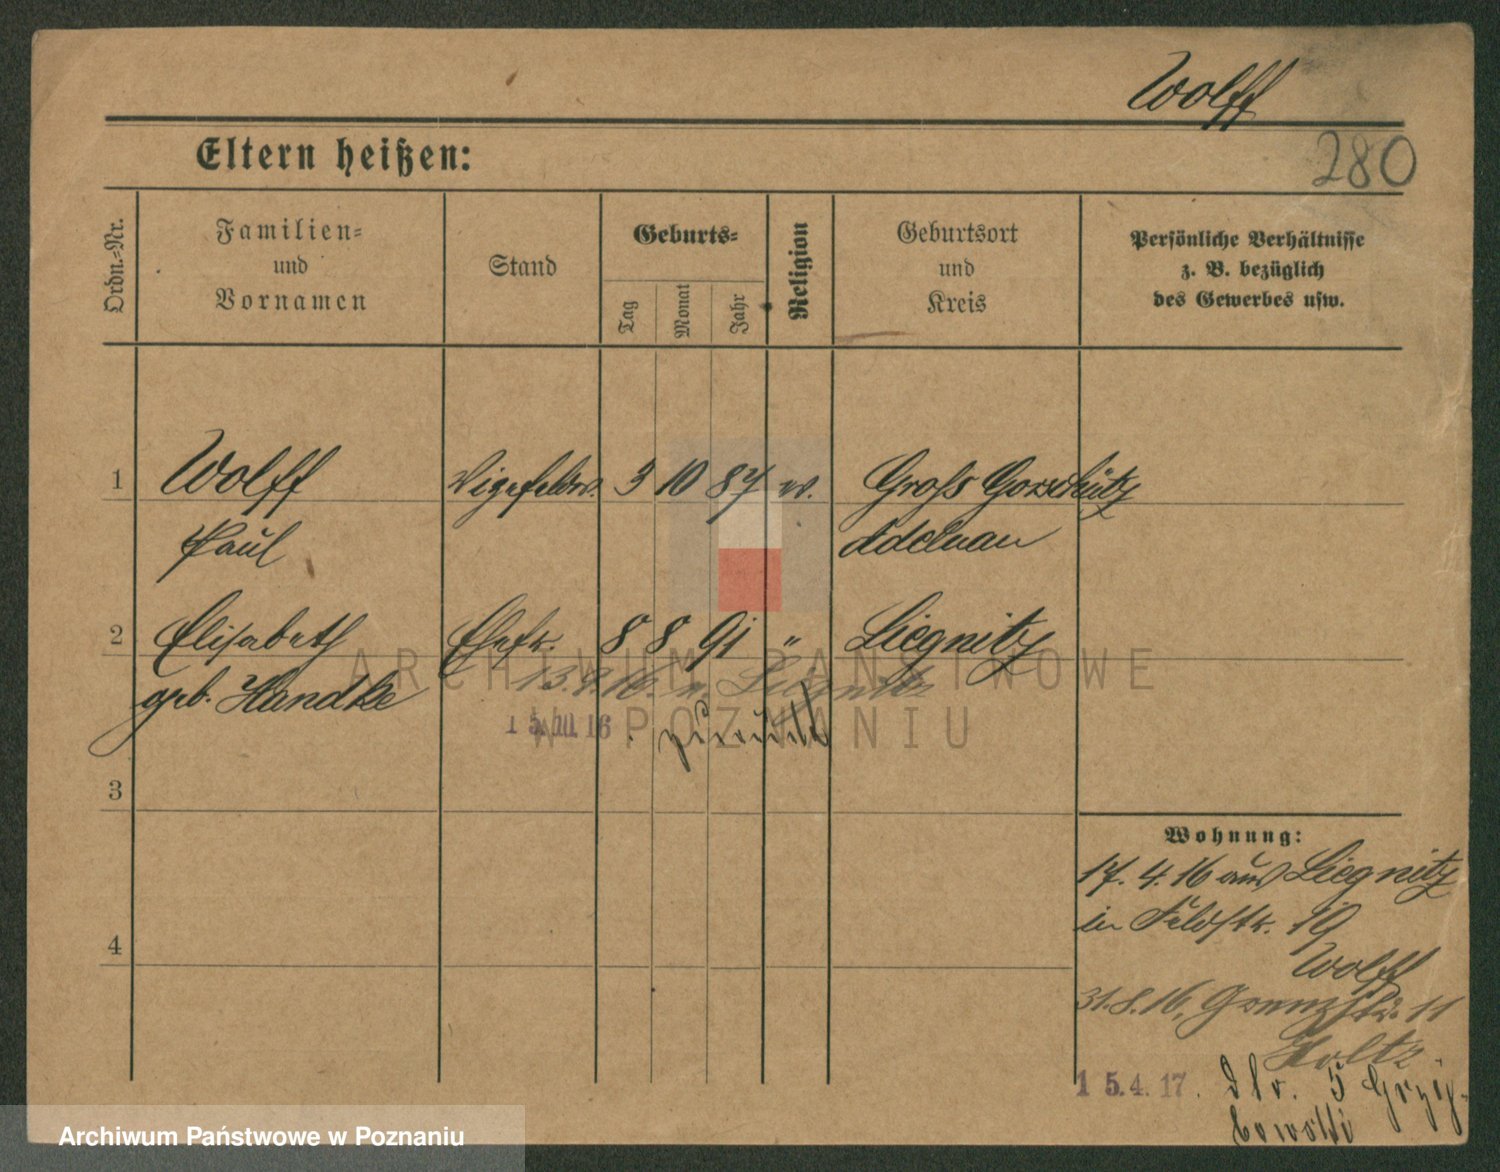 Wolff
280
Eltern heißen:
Ordn.-Nr.
Familien-
und
Vornamen
Stand
Geburts-
Tag
Monat
Jahr
Religion
Geburtsort
und
Kreis
Persönliche Verhältnisse
z. B. bezüglich
des Gewerbes usw.
1 Wolff Vizefeldw. 3 10 87 ev. Groß Gorschütz
Paul Adelnau
2 Elisabeth Ehefr. 8 8 91 " Liegnitz
geb. Handke 13.9.16. n. Liegnitz
15.10.16 zurück
3
4
Wohnung:
17.4.16 aus Liegnitz
in Feldstr. 19
Wolff
31.8.16. Grenzstr. 11
Holtz
15.4.17. 5 Grzy-
bowski
ARCHIWUM PAŃSTWOWE
W POZNANIU
Archiwum Państwowe w Poznaniu